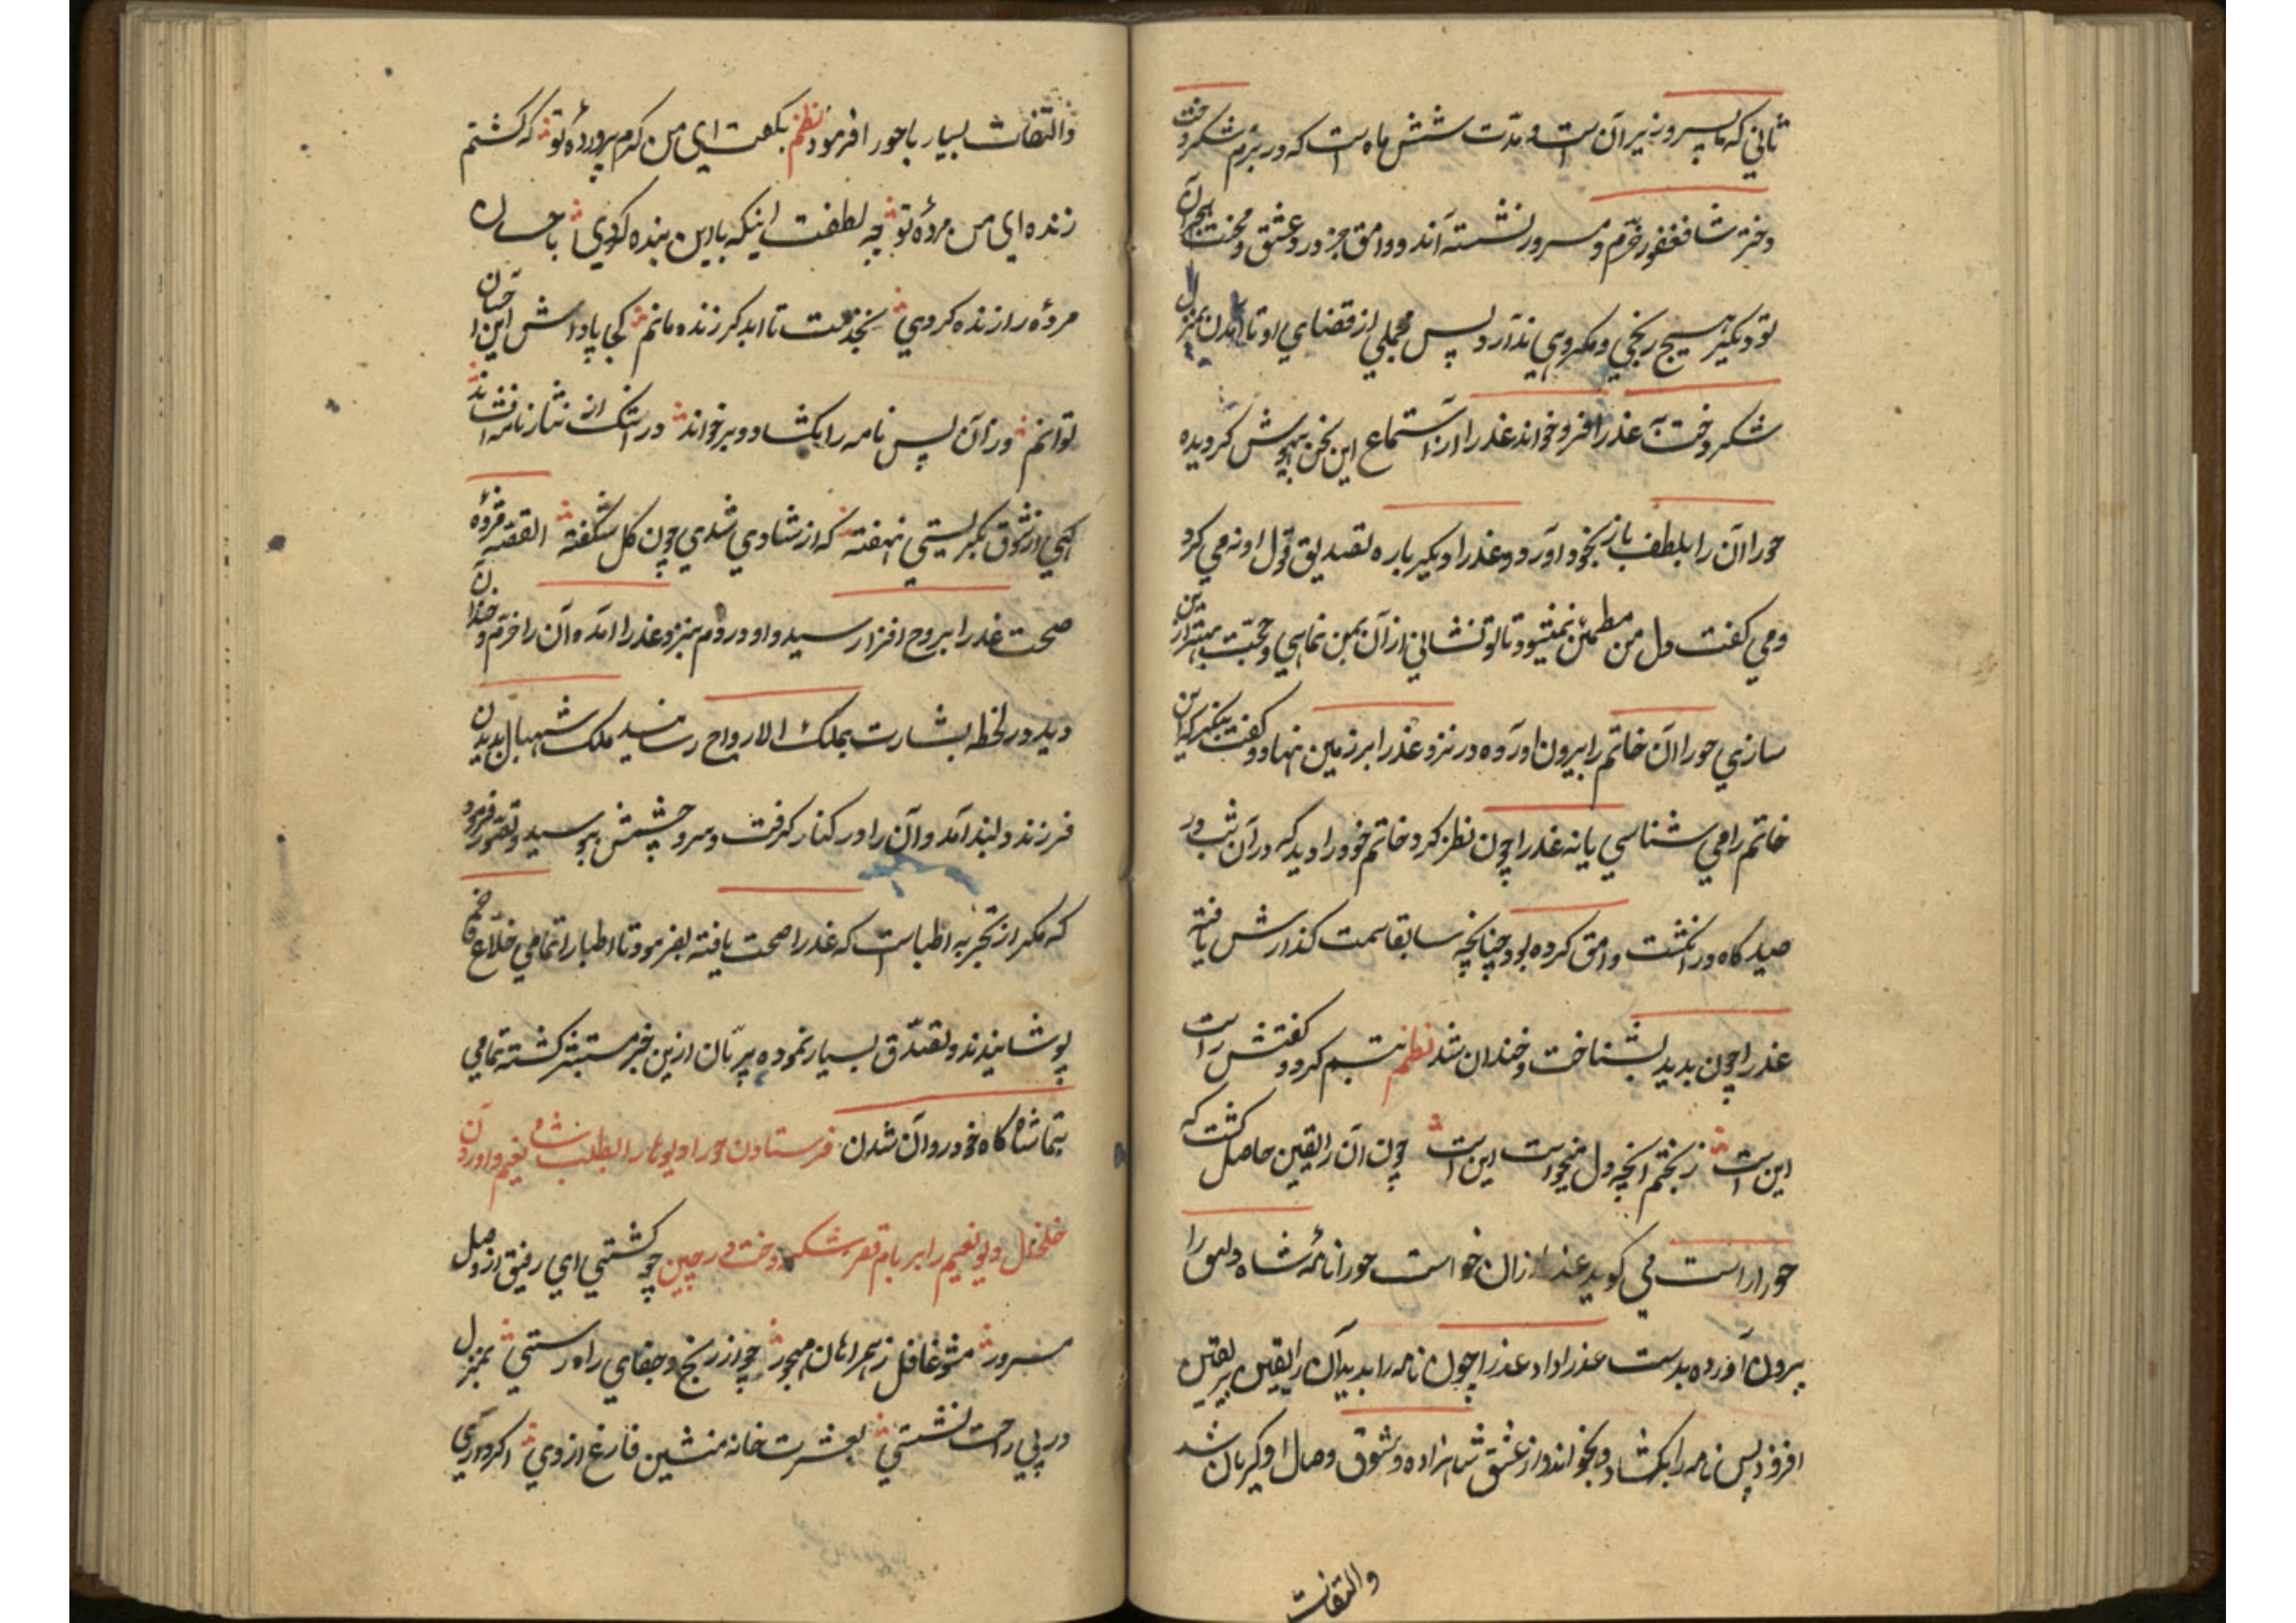 ثانی که با پسر وزیر آن است و مدّت شش ماه است که در بزم شکر دخت
دختر شاه فغفور خرّم و مسرور نشسته‌اند و وامق جز درد عشق و محنت هجران
تو دیگر هیچ رنجی و مکروهی ندارد پس مجملی از قضای او تا آمدن بمنزل
شکر دخت به عذرا فرو خواند عذرا از استماع این سخن بیهوش گردیده
حورا آن را بلطف باز بخود آورد و عذرا دیگر باره تصدیق قول او نمی کرد
و می گفت دل من مطمئن نمیشود تا تو نشانی از آن بمن نمایی و حجّت بهتر ازین
سازی حورا آن خاتم را بیرون اورده در نزد عذرا بر زمین نهاد و گفت بنگر که این
خاتم را می شناسی یا نه عذرا چون نظر کرد خاتم خود را دید که در آن شب در
صیدگاه در انگشت وامق کرده بود چنانچه سابقا سمت گذارش یافته
عذرا چون بدید بشناخت و خندان شد نظم تبسم کرد و گفتش راست
این است ز بختم انچه دل میخواست این است چون آن را یقین حاصل گشت که
حورا راست می گوید عذرا از آن خواست حورا نامهٔ شاه دلهور را
بیرون آورده بدست عذرا داد عذرا چون نامه را بدید آن را یقین بر یقین
افزود پس نامه را بگشاد و بخواند و از عشق شاهزاده و شوق وصال او گریان شد
والتفات
والتفات بسیار با حورا فرمود نظم بگفت ای من کرم پروردهٔ تو که گشتم
زنده ای من مردهٔ تو چه لطفست اینکه با این بنده کردی باحسان
مردهٔ را زنده کردی بخدمت تا ابد گر زنده مانم کجا پاداش این احسان
توانم ور آن پس نامه را بگشاد و بر خواند در اشک از نثار نامه افشاند
گهی از شوق بگریستی نهفته که از شادی شدی چون گل شگفته القصّه مژدهٔ
صحت عذرا بروح افزا رسید و او در دم بنزد عذرا آمده آن را خرّم و خندان
دید در لحظه بشارت بملک الارواح رسانید ملک شهبال بدیدن
فرزند دلبند آمد و آن را در کنار گرفت و سر و چشمش ببوسید و تصور فرمود
که مگر از تجربه اطبا است که عذرا صحت یافته بفرمود تا اطبا را تمامی خلاع فاخر
پوشانیدند و تصدّق بسیار نموده پریان ازین خبر مستبشر گشته تمامی
بتماشاه گاه خود روان شدن فرستادن حورا دیوها را بطلب شاه نعیم و اوردن
خلخال دیو نعیم را بر بام قصر شکر دخت در چین چو گشتی ای رفیق از وصل
مسرور مشو غافل ز همراهان مهجور چو از رنج و جفای راه رستی بمنزل
در پی راحت نشستی بعشرت خانه منشین فارغ از وی اگر داری